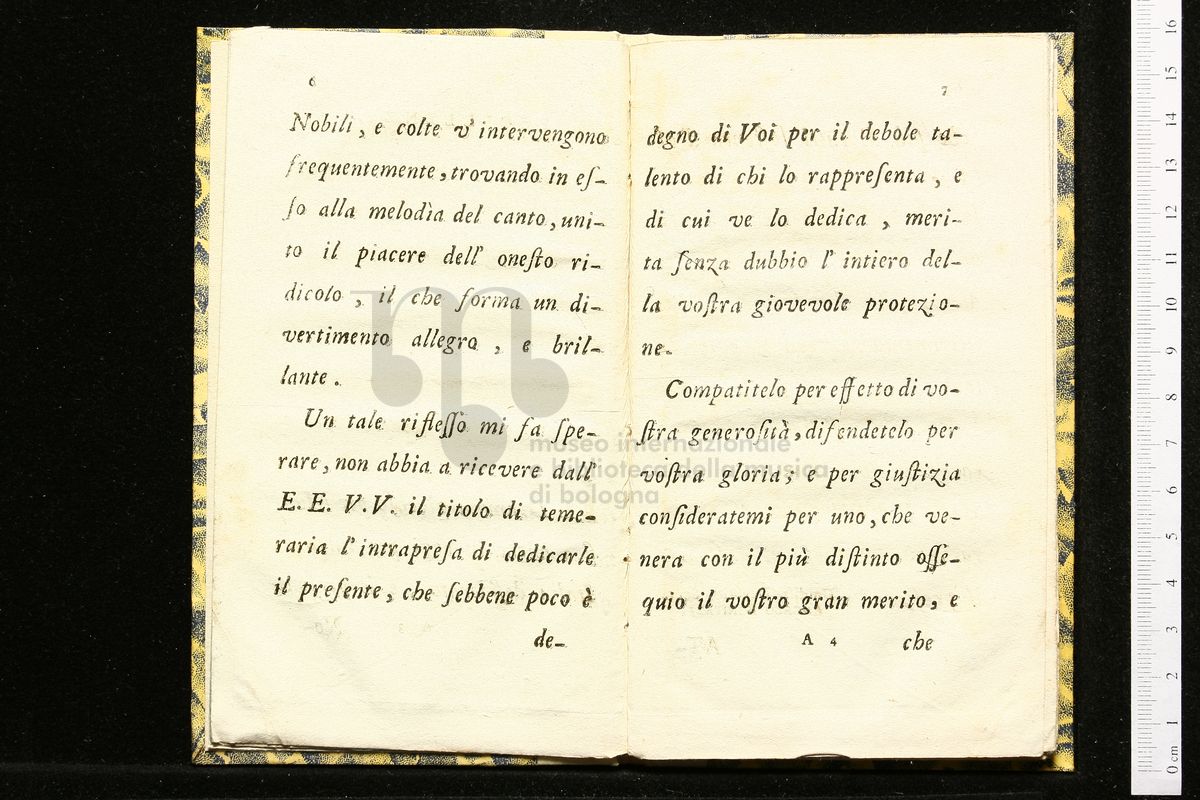 6
Nobili, e colte v'intervengono
frequentemente, trovando in eſ-
ſo alla melodìa del canto, uni-
to il piacere dell' oneſto ri-
dicolo, il che forma un di-
vertimento allegro, e bril-
lante.
Un tale rifleſſo mi fa ſpe-
rare, non abbia a ricevere dall'
E. E. V.V. il titolo di teme-
raria l'intrapreſa di dedicarle
il preſente, che ſebbene poco è
de-
7
degno di Voi per il debole ta-
lento di chi lo rappreſenta, e
di cui ve lo dedica, meri-
ta ſenza dubbio l'intiero del-
la voſtra giovevole protezio-
ne.
Compatitelo per effetto di vo-
ſtra generoſità, difendetelo per
voſtra gloria; e per giuſtizia
conſideratemi per uno, che ve-
nera con il più diſtinto oſſe-
quio il voſtro gran merito, e
A 4 che
museo internazionale
e biblioteca della musica
di bologna
0 cm 1 2 3 4 5 6 7 8 9 10 11 12 13 14 15 16